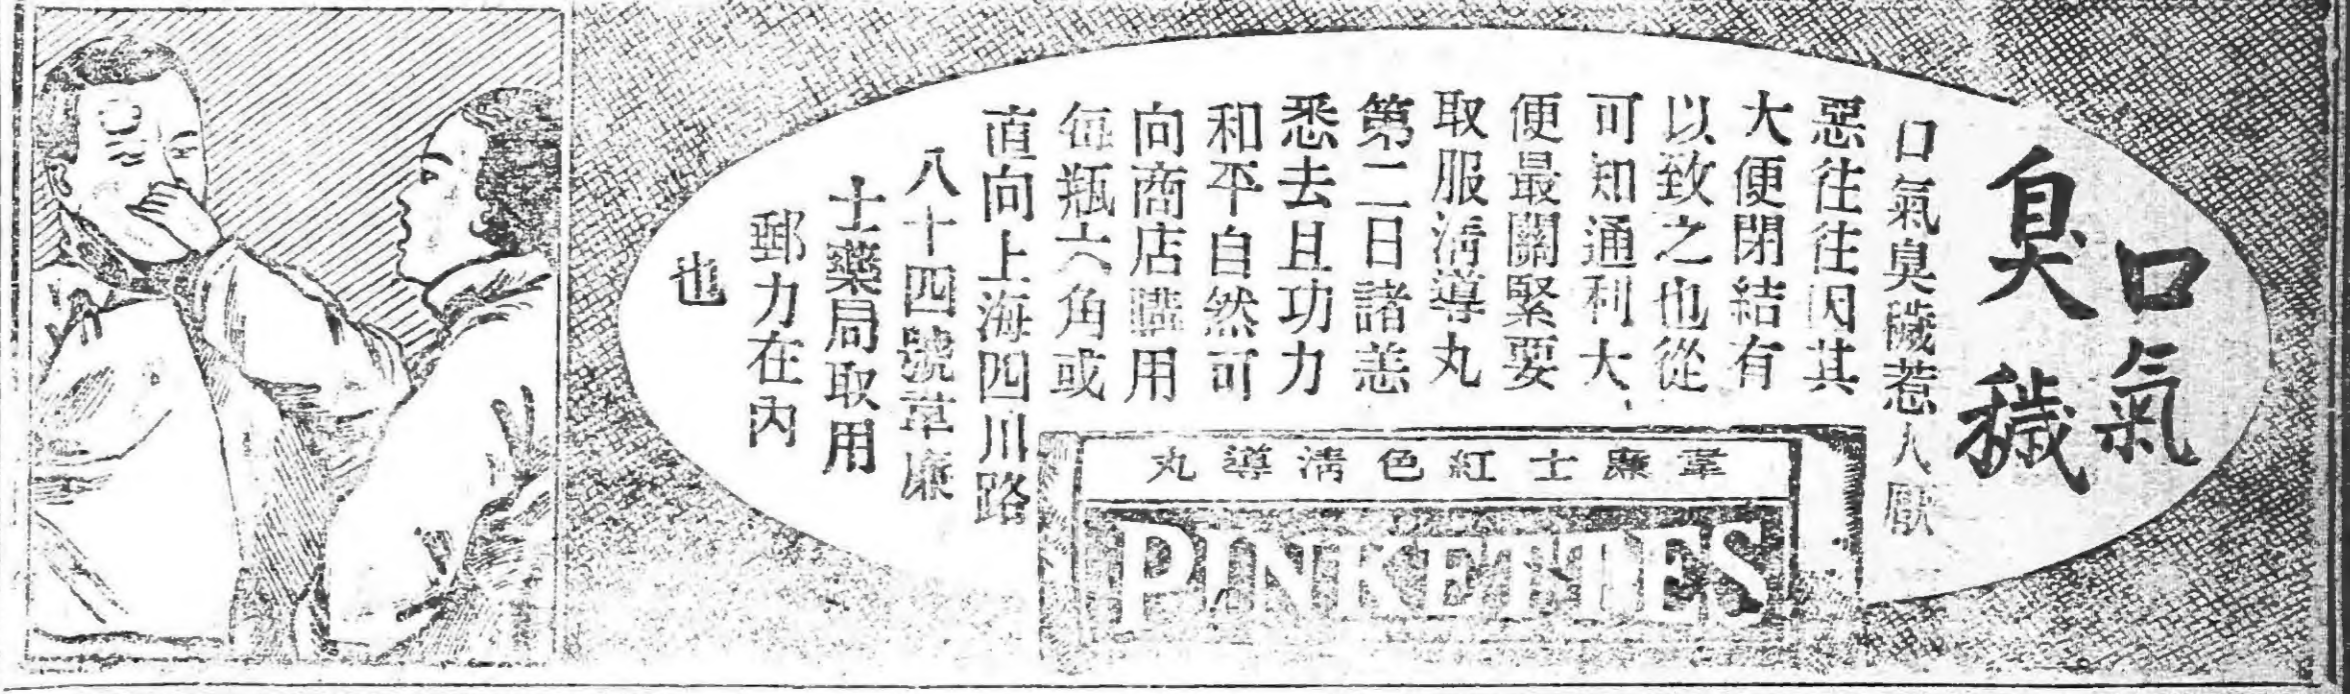 口氣
臭穢
口氣臭穢惹人厭
惡往往因其
大便閉結有
以致之也從
可知通利大
便最關緊要
取服淸導丸
第二日諸恙
悉去且功力
和平自然可
向商店購用
每瓶六角或
直向上海四川路
八十四號韋廉
士藥局取用
郵力在內
也
韋廉士紅色淸導丸
PINKETTES